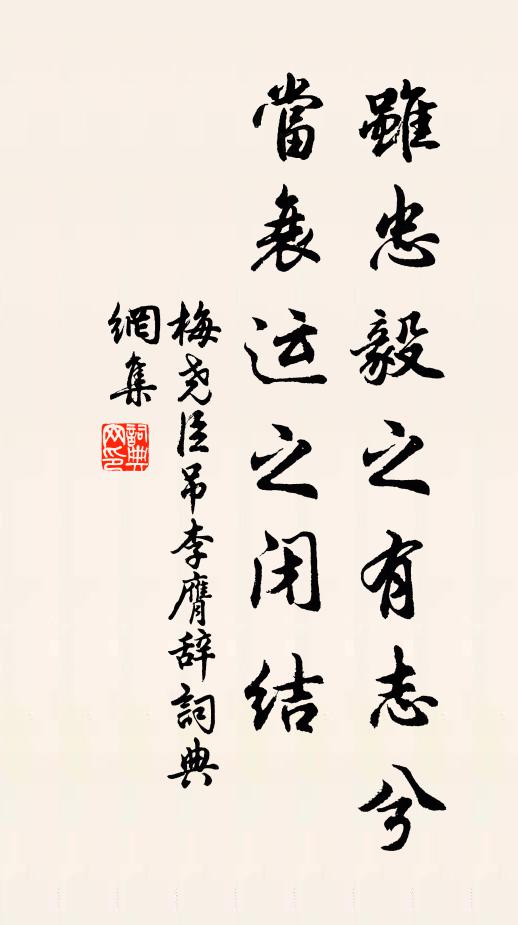 雖忠毅之有志兮
當衰运之闭结
梅尧臣吊李膺辞詞典
網集
詞典网印